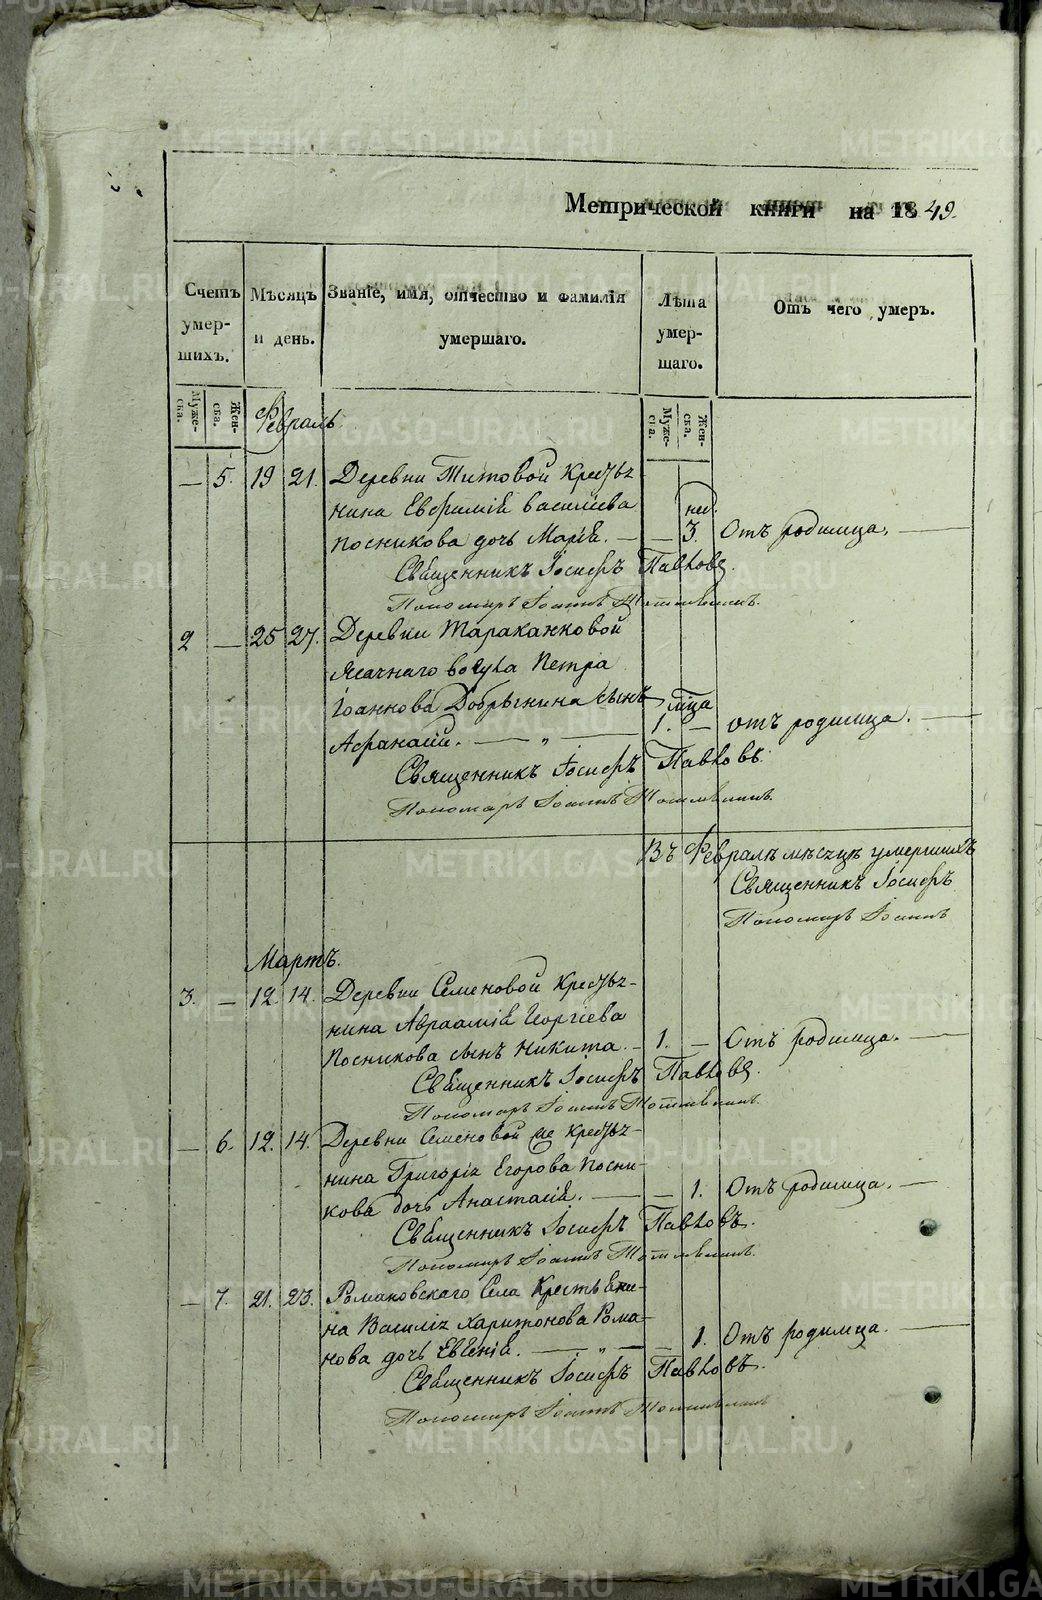 Метрической книги на 1849.
Счетъ умер-шихъ.
Мѣсяцъ и день.
Званіе, имя, отчество и фамилія умершаго.
Лѣта умер-шаго.
Отъ чего умеръ.
Муже-ска. Жен-ска.
Муже-ска. Жен-ска.
Февраль.
— 5. 19 21. Деревни Титовой Крестья-
нина Евфимія Василіева нед.
Посникова дочь Марія. — — 3. Отъ родимца. —
Священникъ Іосифъ Павловъ.
Пономарь Іоаннъ
2 — 25 27. Деревни Тараканковой
Ясачнаго вогула Петра
Іоаннова Добрынина сынъ мца
Афанасій. — „ — 1. — Отъ родимца. —
Священникъ Іосифъ Павловъ.
Пономарь Іоаннъ
Въ Февралѣ мѣсяцѣ умершихъ
Священникъ Іосифъ
Пономарь Іоаннъ
Мартъ.
3. — 12. 14. Деревни Семеновой Крестья-
нина Авраамія Георгіева
Посникова сынъ Никита. — 1. — Отъ родимца. —
Священникъ Іосифъ Павловъ.
Пономарь Іоаннъ
— 6. 12. 14. Деревни Семеновой же Крестья-
нина Григорія Егорова Посни-
кова дочь Анастасія. — — 1. Отъ родимца. —
Священникъ Іосифъ Павловъ.
Пономарь Іоаннъ
— 7. 21. 23. Романовскаго Села Крестьяни-
на Василія Харитонова Рома-
нова дочь Евгенія. — „ — — 1. Отъ родимца. —
Священникъ Іосифъ Павловъ.
Пономарь Іоаннъ
METRIKI.GASO-URAL.RU